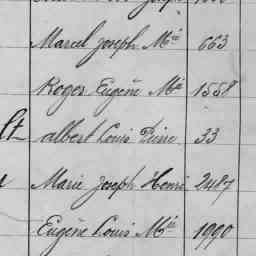 Marcel Joseph Mie 663
Roger Eugène Mie 1558
lt Albert Louis Pierre 33
Marie Joseph Henri 2487
Eugène Louis Mie 1990